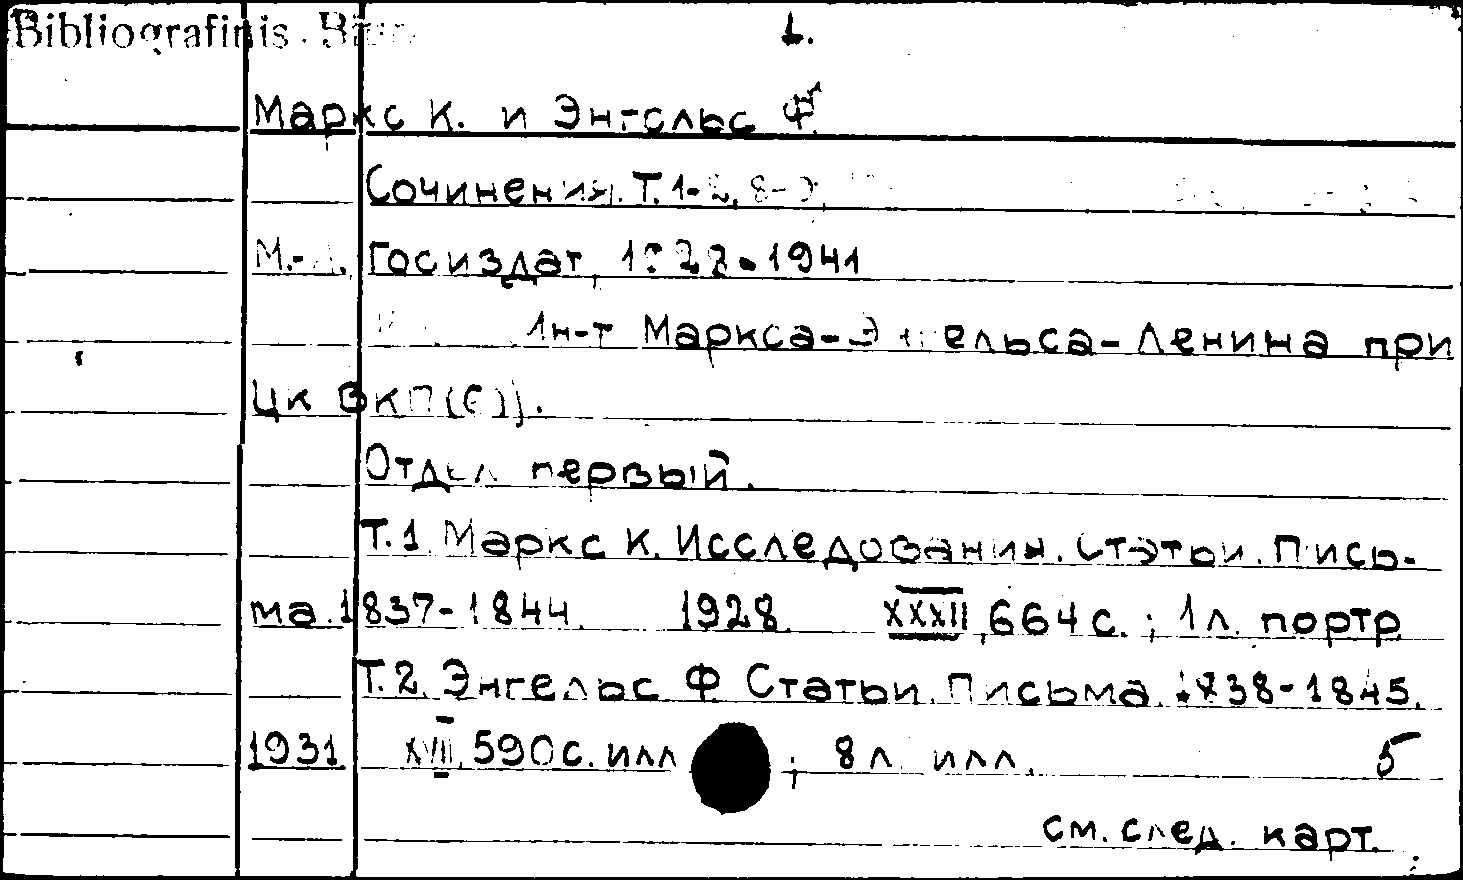 Bibliografinis
1.
Маркс К. и Энгельс Ф.
Сочинения. Т. 1-2, 8-9,
М.-Л. Госиздат, 1928-1941
Ин-т Маркса-Энгельса-Ленина при
ЦК ВКП(б).
Отдел первый.
Т.1. Маркс К. Исследования. Статьи. Пись-
ма. 1837-1844. 1928. XXXII, 664 с. ; 1 л. портр.
Т.2. Энгельс Ф. Статьи. Письма. 1838-1845.
1931. XVII, 590 с. илл ; 8 л. илл. 5
см. след. карт.